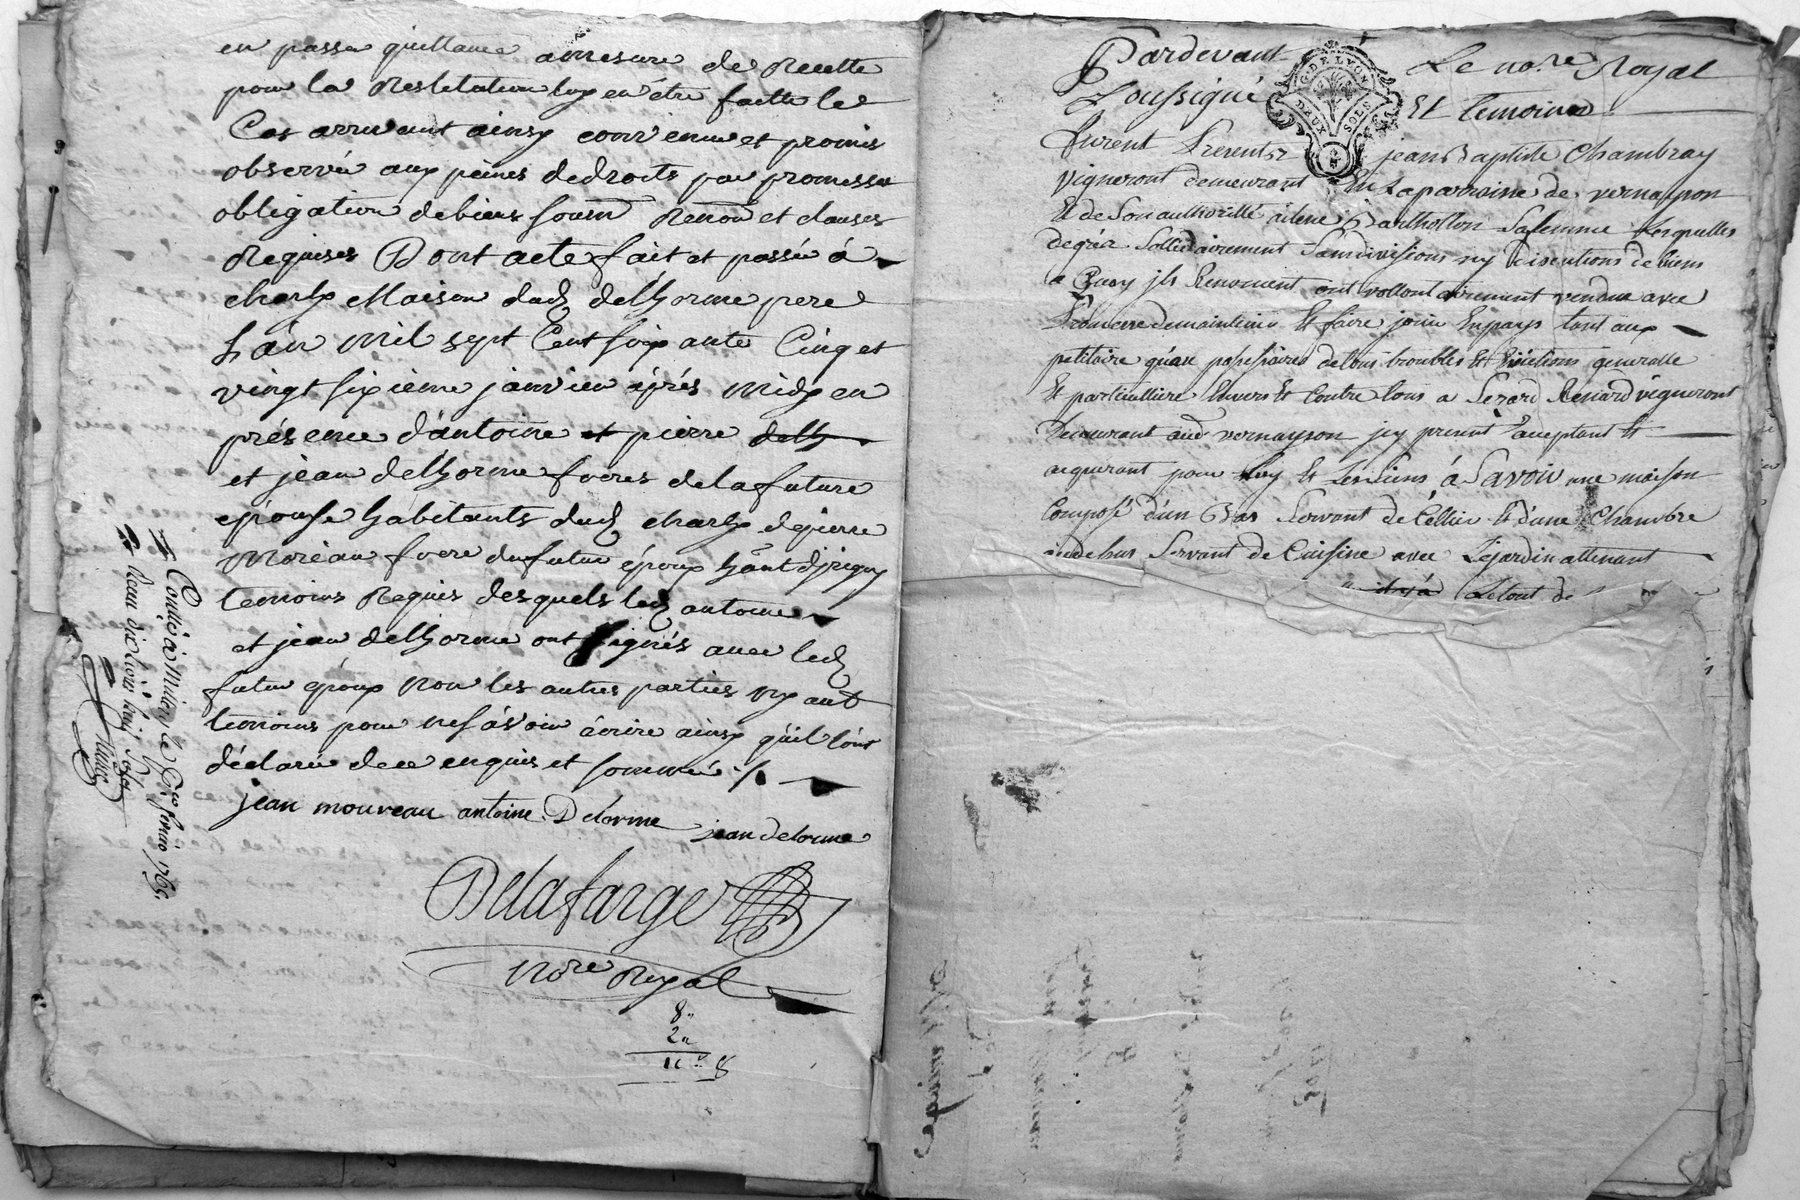 en passer quittance amesure de Recette
pour la Restitution luy en être faitte le
Cas arrivant ainsy convenu et promis
observé aux peines de droits par promesse
obligation de biens soum Renon et clauses
Requises Dont acte fait et passé à
charly Maison dud delhorme pere
L'an Mil sept Cent soixante Cinq et
vingt sixieme janvier aprés Midy en
présence d'antoine et pierre delh
et jean delhorme freres de la future
epouse habitants dud charly de pierre
Moreau frere du futur époux hant djrigny
temoins Requis desquels led antoine
et jean delhorme ont signés avec led
futur époux non les autres parties ny aut
temoins pour ne sàvoir écrire ainsy qu'il l'ont
déclaré de ce enquis et sommé ./.
jean mouveau antoine Delorme jean delorme
Delafarge
No.re Royal
8"
2"
Contlé à Millery le Pr fevrier 1765.
Pardevant Le no.re Royal
Soussigné Et temoins
G. DE LYON
DEUX SOLS
furent Presents jean Baptiste Chambray
vigneront demeurant En La parroisse de vernayson
Et de Son authorité Barthollon Sa femme Lesquelles
de gréz Sollidairement Sans divisions ny discutions de biens
a Quoy jls Renoncent ont vollontairement vendue avec
Promesse de maintenir Et faire jouir En paix tant aux
petitoire qu'au possessoires de tous troubles Et Evictions generalle
Et particulliere Envers Et Contre tous a Renard vigneront
Demeurant aud vernayson jcy present acceptant Et
acquerant pour Luy Et Les siens à Savoir une maison
Composé d'un Bas Servant de Cellier Et d'une Chambre
audessus Servant de Cuisine avec Le jardin attenant
Le tout de